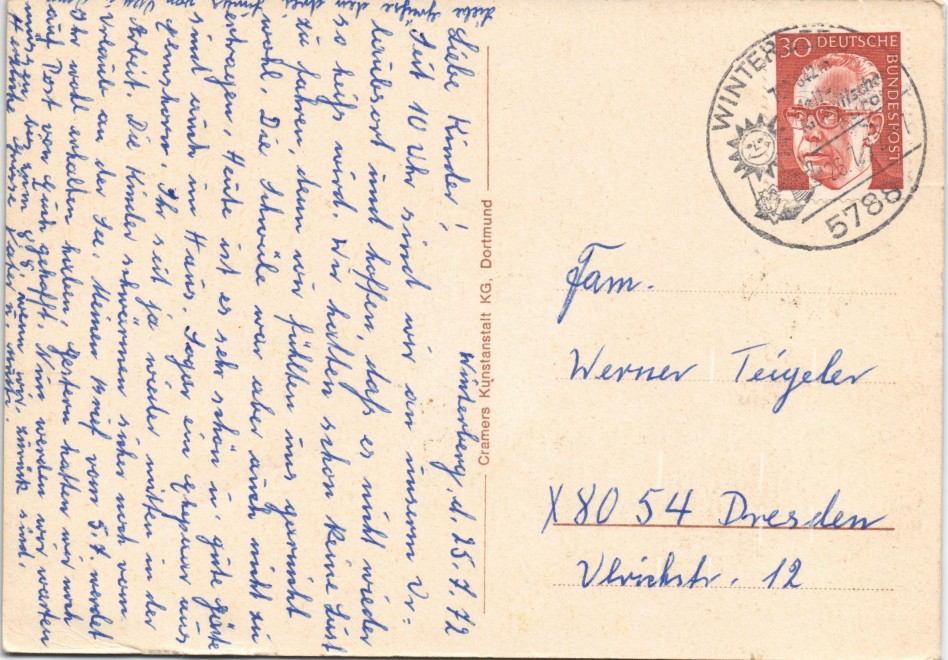 Winterberg, d. 25.7.72
Liebe Kinder!
Seit 10 Uhr sind wir an unserem Ur-
laubsort und hoffen, daß es nicht wieder
so heiß wird. Wir hatten schon keine Lust
zu fahren, denn wir fühlten uns garnicht
wohl. Die Schwüle war aber auch nicht zu
ertragen. Heute ist es sehr schön u. gute Gäste
sind auch im Haus. Sogar ein Ehepaar aus
Ihr seid ja wieder mitten in der
Arbeit. Die Kinder schwärmen sicher noch vom
Urlaub an der See. Meinen Brief vom 5.7. werdet
Ihr wohl erhalten haben, gestern hatten wir noch
auf Post von Euch gehofft. Nun werden wir warten
müssen bis zum 8.8. wenn wir zurück sind.
Herzl.
Liebe Grüße
Cramers Kunstanstalt KG, Dortmund
30 DEUTSCHE BUNDESPOST
WINTER
5788
Fam.
Werner Teigeler
X8054 Dresden
Ulrichstr. 12